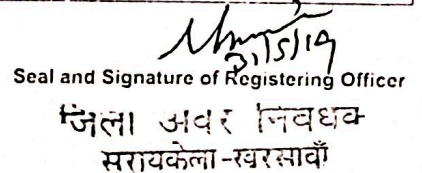 31/5/19
Seal and Signature of Registering Officer
जिला अवर निबंधक
सरायकेला-खरसावाँ